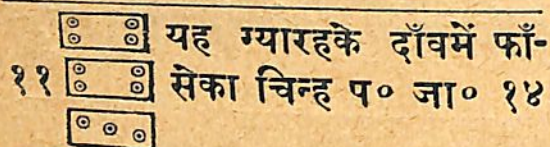 यह ग्यारहके दाँवमें फाँ-
११ सेका चिन्ह प० जा० १४